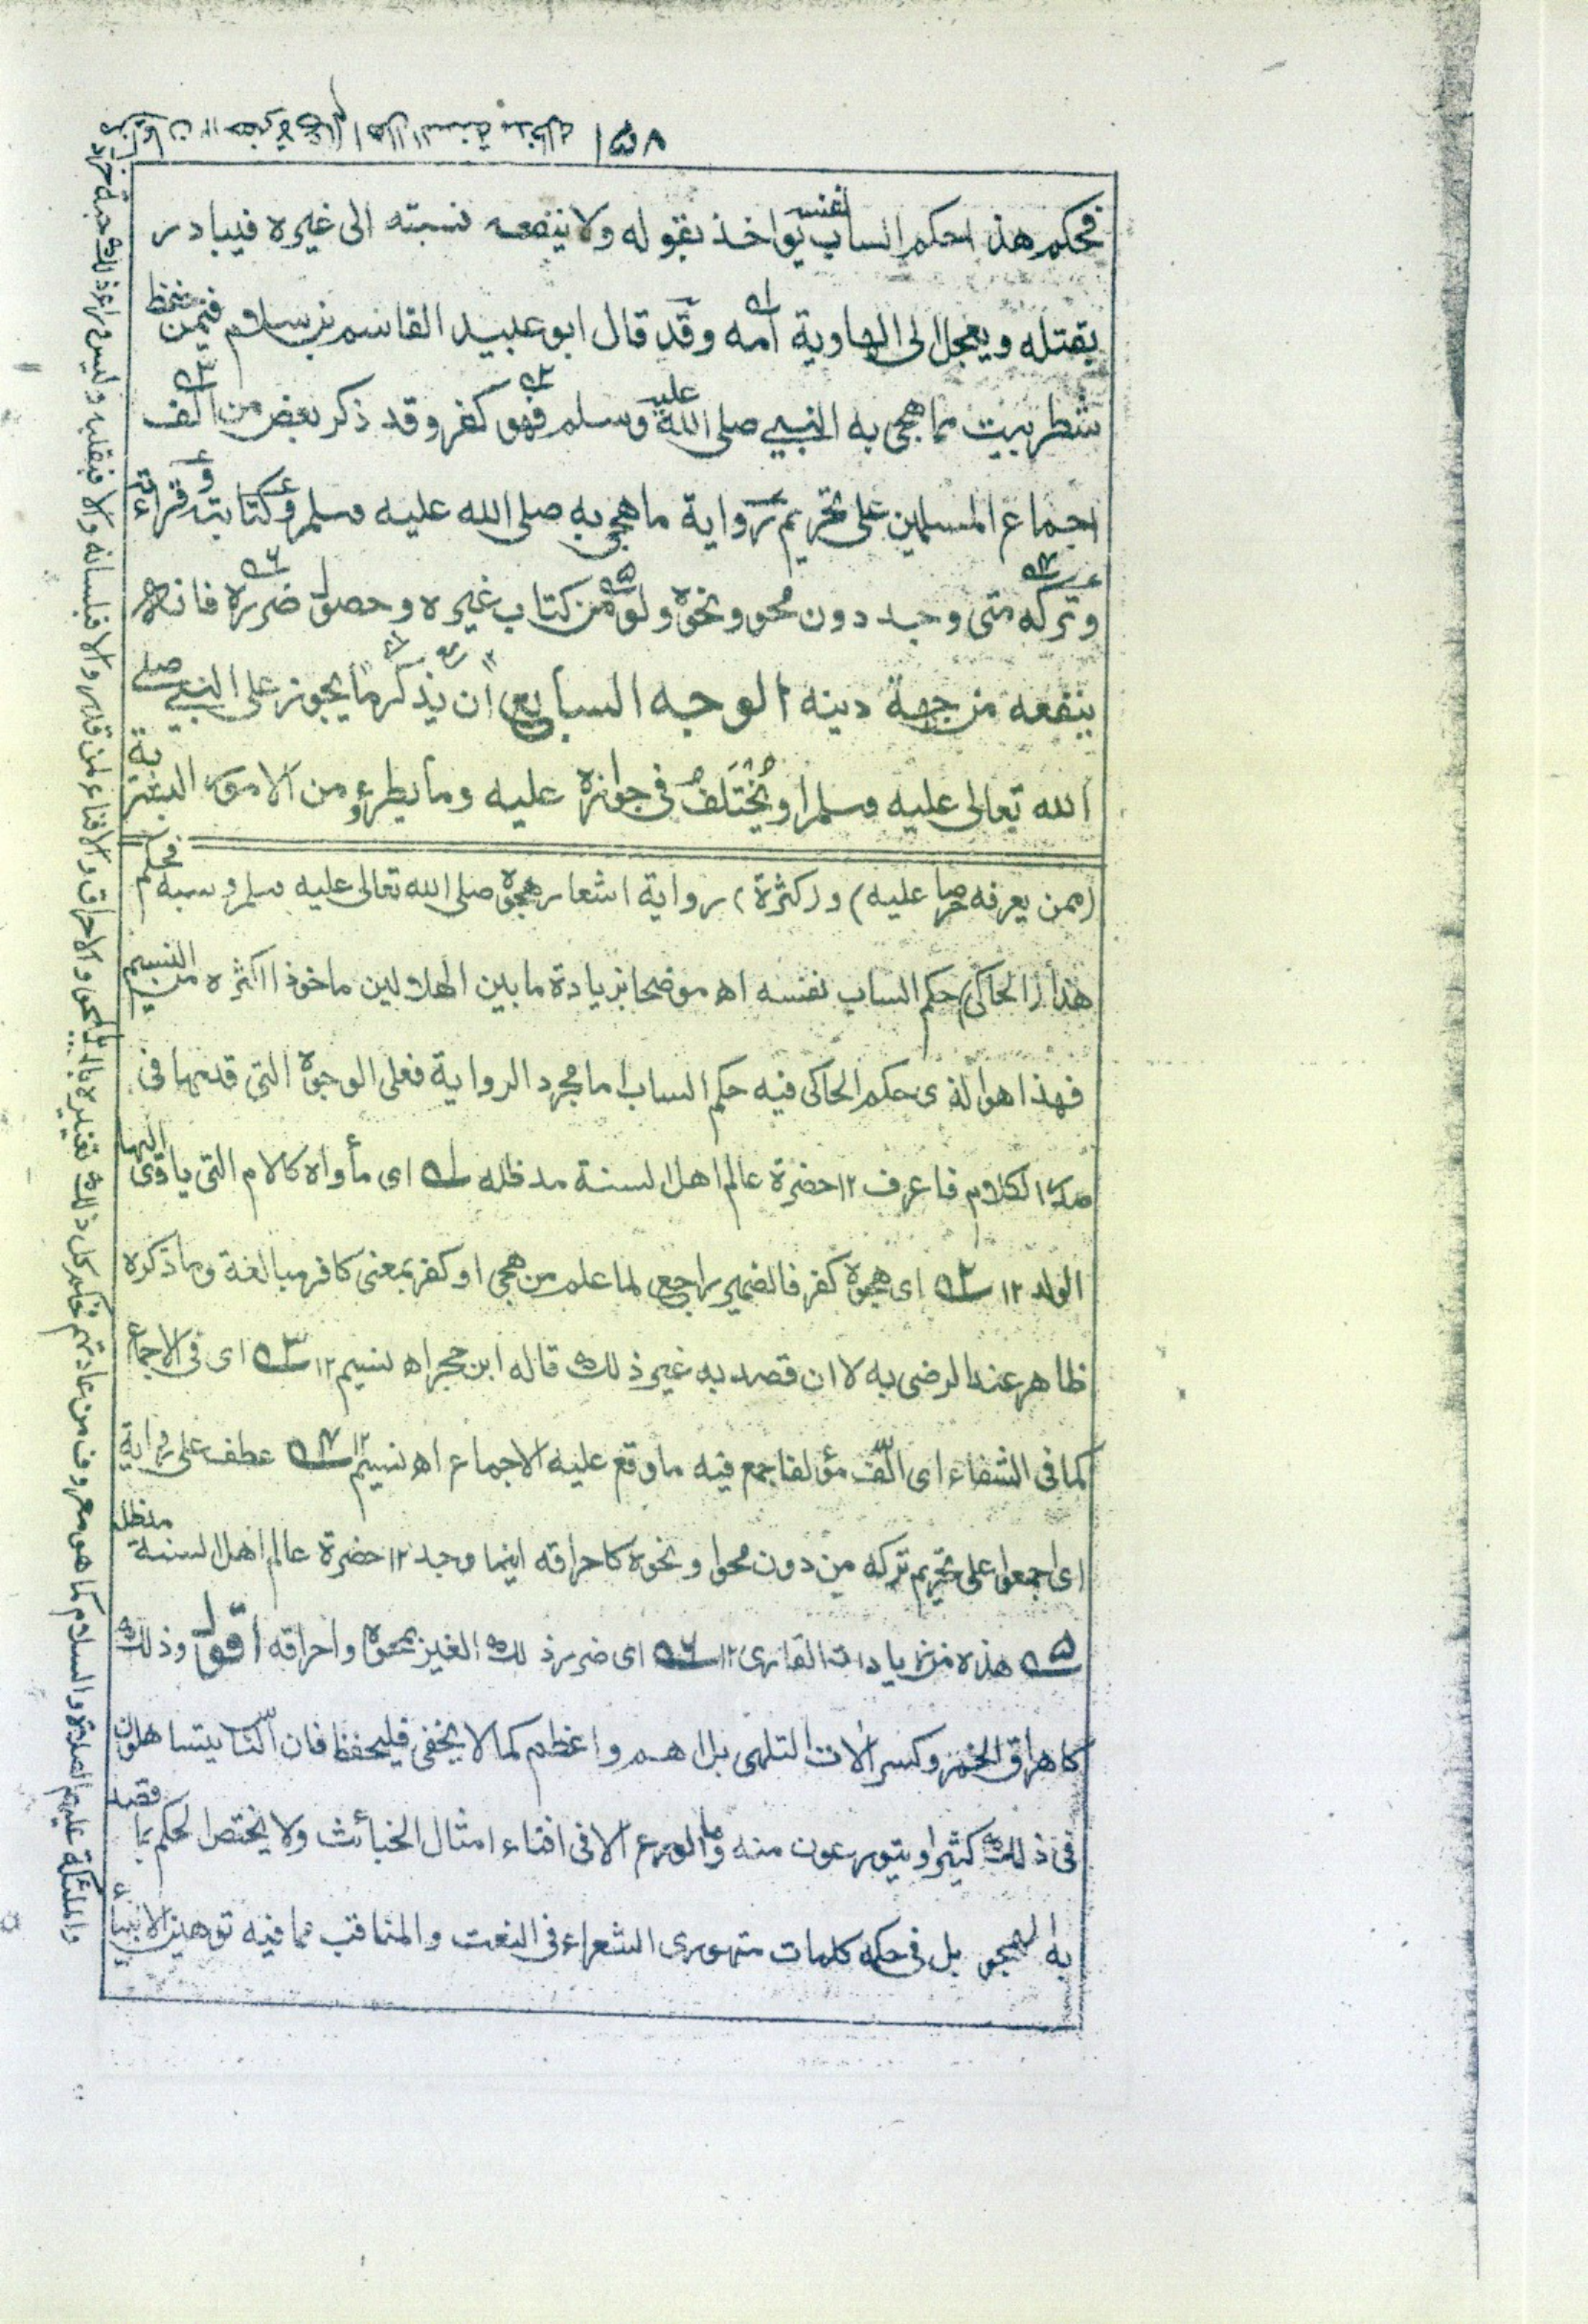 ١٥٨
فحكم هذا حكم الساب نفسه يواخذ بقوله ولا ينفعه نسبته الى غيره فيبادر
بقتله ويعجل الى الهاوية امه وقد قال ابو عبيد القاسم بن سلام فيمن حفظ
شطر بيت مما هجى به النبي صلى الله عليه وسلم فهو كفر وقد ذكر بعض من الف
اجماع المسلمين على تحريم رواية ما هجى به صلى الله عليه وسلم وكتابته وقراءته
وتركه متى وجد دون محو ونحوه ولو من كتاب غيره وحصول ضرره فانه
ينفعه من جهة دينه الوجه السابع ان يذكر ما يجوز على النبي صلى
الله تعالى عليه وسلم او يختلف في جوازه عليه وما يطرء من الامور البشرية
(ممن يعرفه حرصا عليه) و(كثرة) رواية اشعار هجوه صلى الله تعالى عليه وسلم وسبه فحكم
هذا (الحاكى) حكم الساب نفسه اه موضحا بزيادة ما بين الهلالين ماخوذا اكثره من النسيم
فهذا هو الذى حكم الحاكى فيه حكم الساب اما مجرد الرواية فعلى الوجوه التى قدمها فى
صدر الكلام فاعرف ١٢ حضرة عالم اهل السنة مدظله ١ ه اى مأواه كالام التى ياوى اليها
الولد ١٢ ٢ ه اى هجوه كفر فالضمير راجع لما علم من هجى او كفر بمعنى كافر مبالغة وما ذكره
ظاهر عند الرضى به لا ان قصد به غير ذلك قاله ابن حجر اه نسيم ١٢ ٣ ه اى فى الاجماع
كما فى الشفاء اى الّف مؤلفا جمع فيه ما وقع عليه الاجماع اه نسيم ١٢ ٤ ه عطف على رواية
اى اجمعوا على تحريم تركه من دون محوا ونحوه كاحراقه اينما وجد ١٢ حضرة عالم اهل السنة مدظله
٥ ه هذه من زيادات القارى ١٢ ٦ ه اى ضرر ذلك الغير بمحوه واحراقه اقول وذلك
كاهراق الخمر وكسر الات التلهى بل اهم واعظم كما لا يخفى فليحفظ فان الناس يتساهلون
فى ذلك كثيرا ويتورعون منه وما الورع الا فى افناء امثال الخبائث ولا يختص الحكم بما قصد
به الهجو بل فى حكمه كلمات متهورى الشعراء فى النعت والمناقب مما فيه توهين الانبياء
والملئكة عليهم الصلاة والسلام كما هو معروف من عادتهم فحكم كل ذلك تغييره بالمحو والاحراق والافناء لمن قدر والا فبلسانه والا فبقلبه وليس وراء ذلك حبة خردل